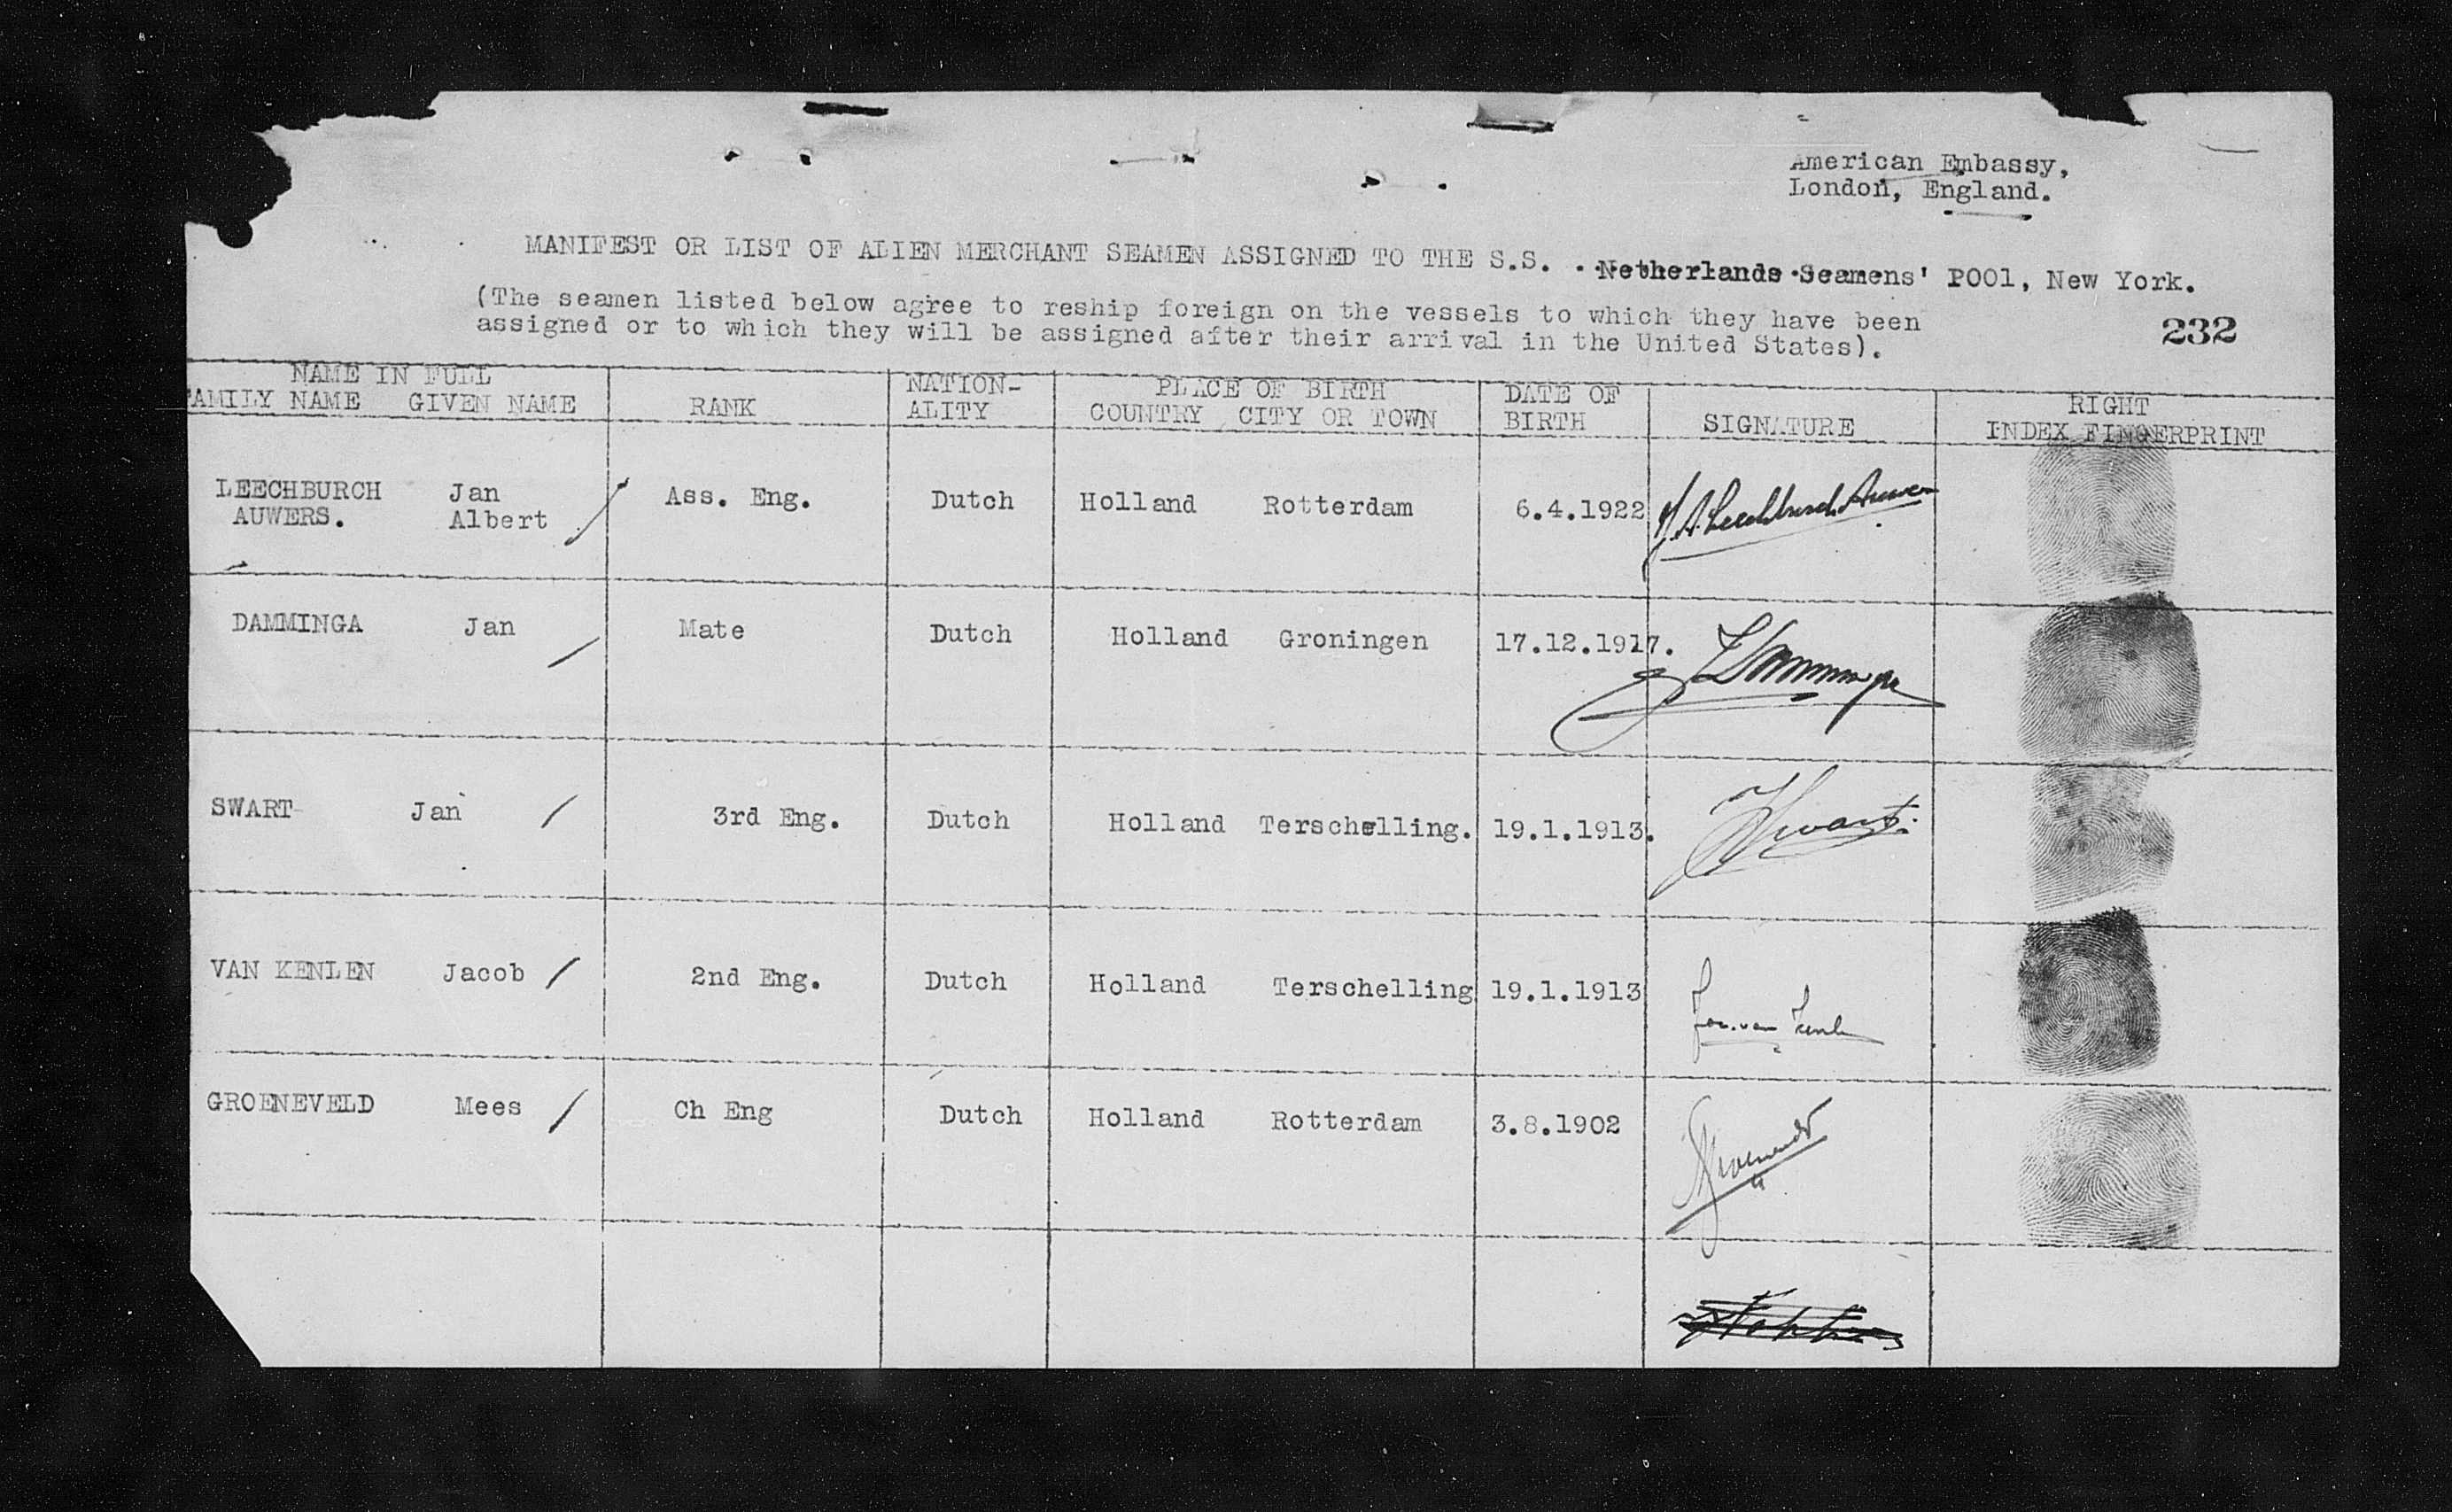 American Embassy,
London, England.
MANIFEST OR LIST OF ALIEN MERCHANT SEAMEN ASSIGNED TO THE S.S. . Netherlands Seamens' POOl, New York.
(The seamen listed below agree to reship foreign on the vessels to which they have been
assigned or to which they will be assigned after their arrival in the United States).
232
NAME IN FULL
FAMILY NAME GIVEN NAME RANK NATION-
ALITY PLACE OF BIRTH
COUNTRY CITY OR TOWN DATE OF
BIRTH SIGNATURE RIGHT
INDEX FINGERPRINT
LEECHBURCH Jan Ass. Eng. Dutch Holland Rotterdam 6.4.1922 J.A. Leechburch Auwers
AUWERS. Albert
DAMMINGA Jan Mate Dutch Holland Groningen 17.12.1917. J Damminga
SWART Jan 3rd Eng. Dutch Holland Terschelling. 19.1.1913. J Swart.
VAN KENLEN Jacob 2nd Eng. Dutch Holland Terschelling 19.1.1913 Jac. van
GROENEVELD Mees Ch Eng Dutch Holland Rotterdam 3.8.1902 Groeneveld